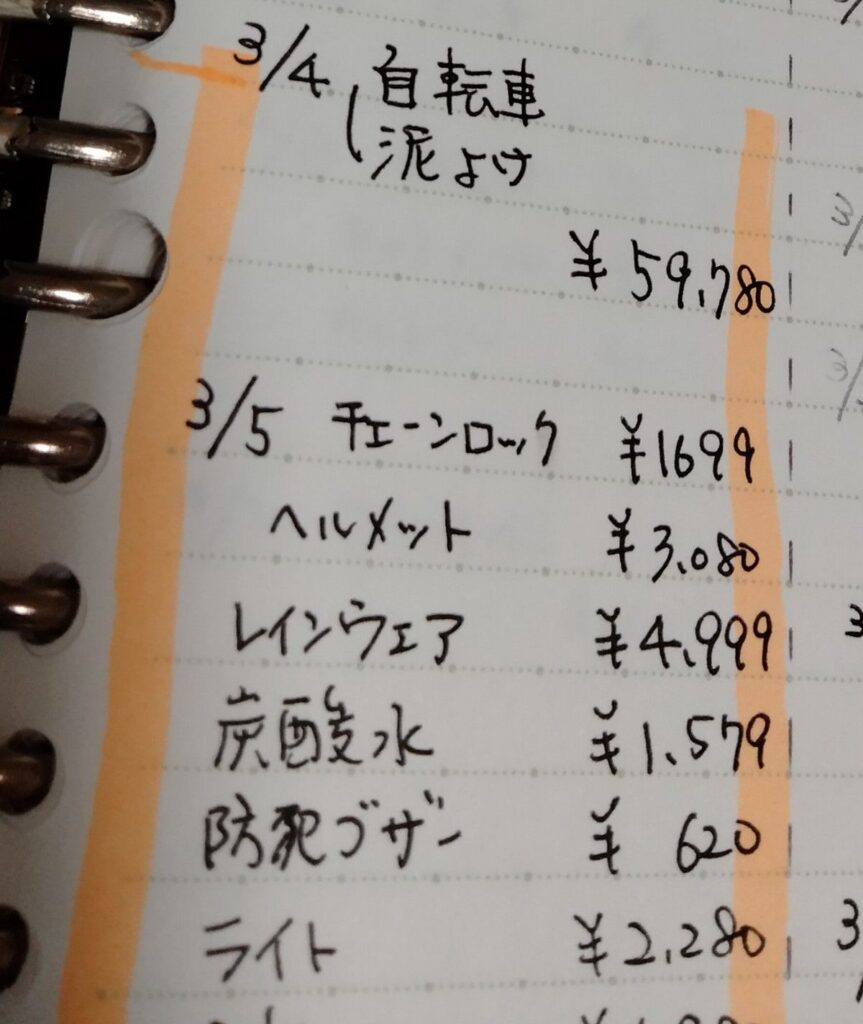 3/4 自転車
泥よけ
¥59,780
3/5 チェーンロック ¥1699
ヘルメット ¥3,080
レインウェア ¥4,999
炭酸水 ¥1,579
防犯ブザー ¥620
ライト ¥2,280